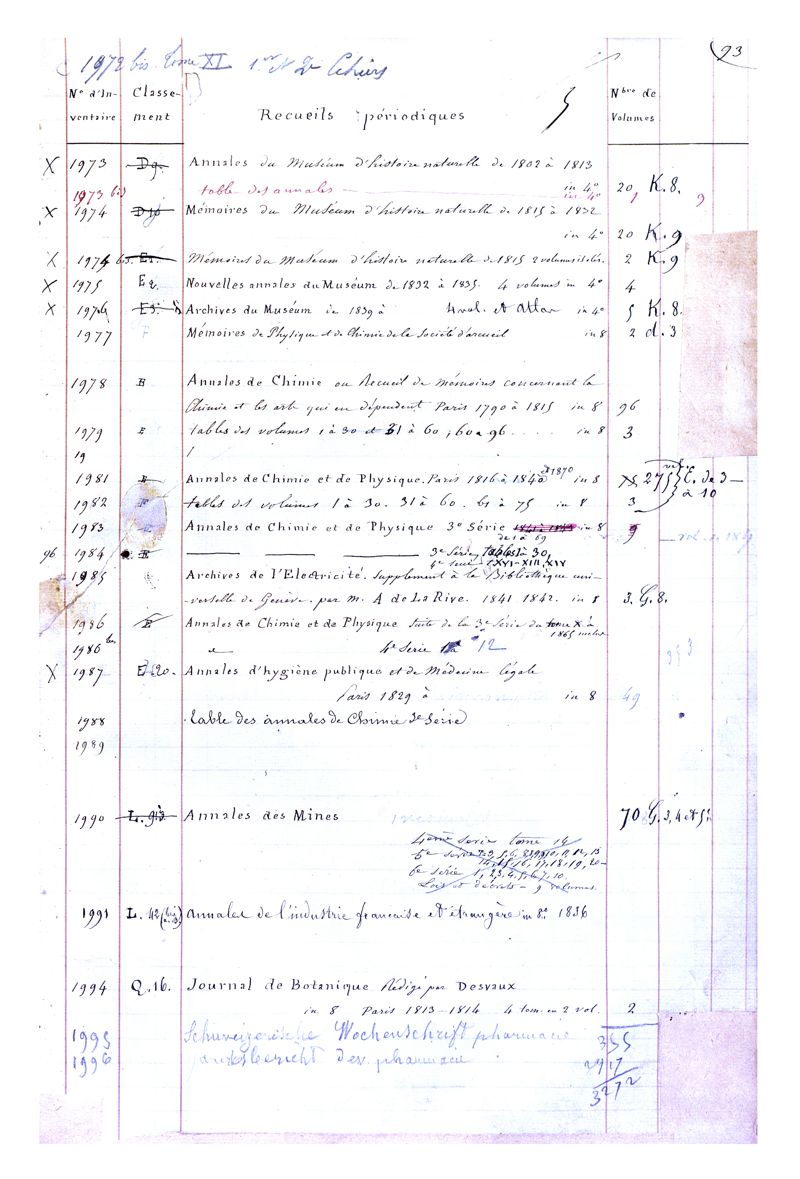 93
1972 bis. tome XI 1er & 2e Cahiers
No d'Inventaire Classement Recueils périodiques 5 Nbre de Volumes
X 1973 Dg. Annales du Muséum d'histoire naturelle de 1802 à 1813
in 4o 20 K.8.
1973 bis table des annales in 4o 1 9
X 1974 Mémoires du Muséum d'histoire naturelle de 1815 à 1832
in 4o 20 K.9
X 1974 bis. E1. Mémoires du Muséum d'histoire naturelle de 1815 2 volumes 2 K.9
X 1975 E2. Nouvelles annales du Muséum de 1832 à 1835. 4 volumes in 4o 4
X 1976 E3. Archives du Muséum de 1839 à 4 vol. et Atlas in 4o 5 K.8.
1977 F Mémoires de Physique et de Chimie de la Société d'arcueil in 8 2 d.3
1978 E Annales de Chimie ou Recueil de mémoires concernant la
Chimie et les arts qui en dépendent Paris 1790 à 1815 in 8o 96
1979 E tables des volumes 1 à 30 et 31 à 60, 60 à 96 .... in 8 3
19
1981 E Annales de Chimie et de Physique. Paris 1816 à 1840 à 1870 in 8 275 E. de 3 à 10
1982 E tables des volumes 1 à 30. 31 à 60. 61 à 75 in 8 3
1983 E Annales de Chimie et de Physique 3e Série 1841 à 1843 in 8 9
de 1 à 69
96 1984 E 3e Série, tables 1 à 30,
4e serie XVI-XIII, XIV
1985 Archives de l'Electricité. Supplément à la Bibliothèque uni-
-verselle de Genève. par M. A de La Rive. 1841 1842. in 8 3. G.8.
1986 E Annales de Chimie et de Physique Suite de la 3e Série du tome X à
1865 inclus
1986 bis 4e Serie 12
X 1987 E.20. Annales d'hygiène publique et de Médecine légale 353
Paris 1829 à in 8 49
1988 table des annales de Chimie 3e Série
1989
1990 L.9 bis. Annales des Mines 70 G.3, 4 et 5
4ème Serie tome 14
5e série 2, 3, 5, 6, 8, 9, 10, 11, 12, 13
14, 15, 16, 17, 18, 19, 20-
6e série 1, 2, 3, 4, 5, 6, 7, 10.
Lois et décrets - 9 volumes.
1991 L. 42 Annales de l'industrie française et étrangère in 8o 1836
1994 Q.16. Journal de Botanique Rédigé par Desvaux
in 8 Paris 1813-1814 4 tom. en 2 vol. 2
1995 Schweizerische Wochenschrift pharmacie 355
1996 Jahresbericht der pharmacie 2917
3272